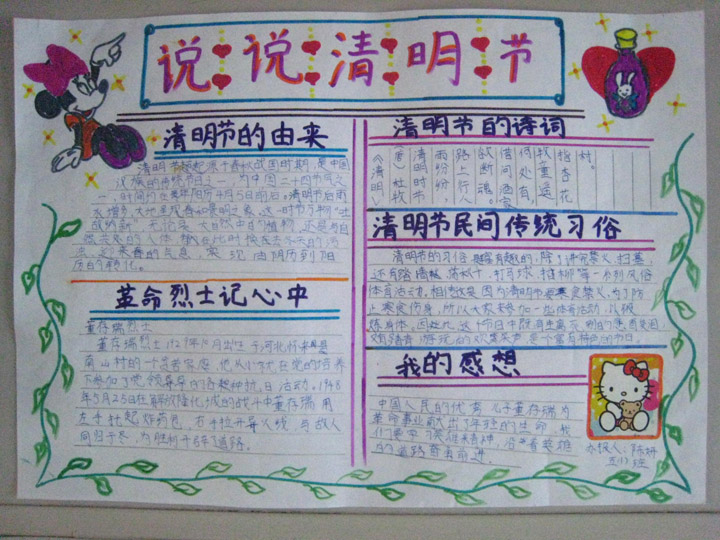 说说清明节
清明节的由来
清明节起源于春秋战国时期,是中国
汉族的传统节日之一,为中国二十四节气之
一,时间约在每年阳历4月5日前后。清明节后雨
水增多,大地呈现春和景明之象。这一时节万物"吐
故纳新",无论是大自然中的植被,还是与自
然共处的人体,都在此时换去冬天的污
历的转化。
革命烈士记心中
董存瑞烈士
南山村的一个贫苦家庭,他从小就在党的培养
下参加了党领导的各种抗日活动。1948
年5月25日在解放隆化城的战斗中董存瑞用
左手托起炸药包,右手拉开导火线,与敌人
同归于尽,为胜利开辟了道路。
清明节的诗词
《清明》
(唐)杜牧
清明时节雨纷纷,
路上行人欲断魂。
借问酒家何处有,
牧童遥指杏花
清明节民间传统习俗
清明节的习俗是有趣的,除了讲究禁火、扫墓,
还有踏青、荡秋千、打马球、插柳等一系列风俗
体育活动。相传这是因为清明节要寒食禁火,为了防
止寒食伤身,所以大家参加一些体育活动,以锻
炼身体。因此,这个节日中既有生离死别的悲
游玩的欢笑声,是一个富有特色的节日
我的感想
中国人民的优秀儿子董存瑞为
革命事业献出了年轻的生命,我
们要学习英雄精神,沿着英雄
的道路奋勇前进。
办报人:陈妍